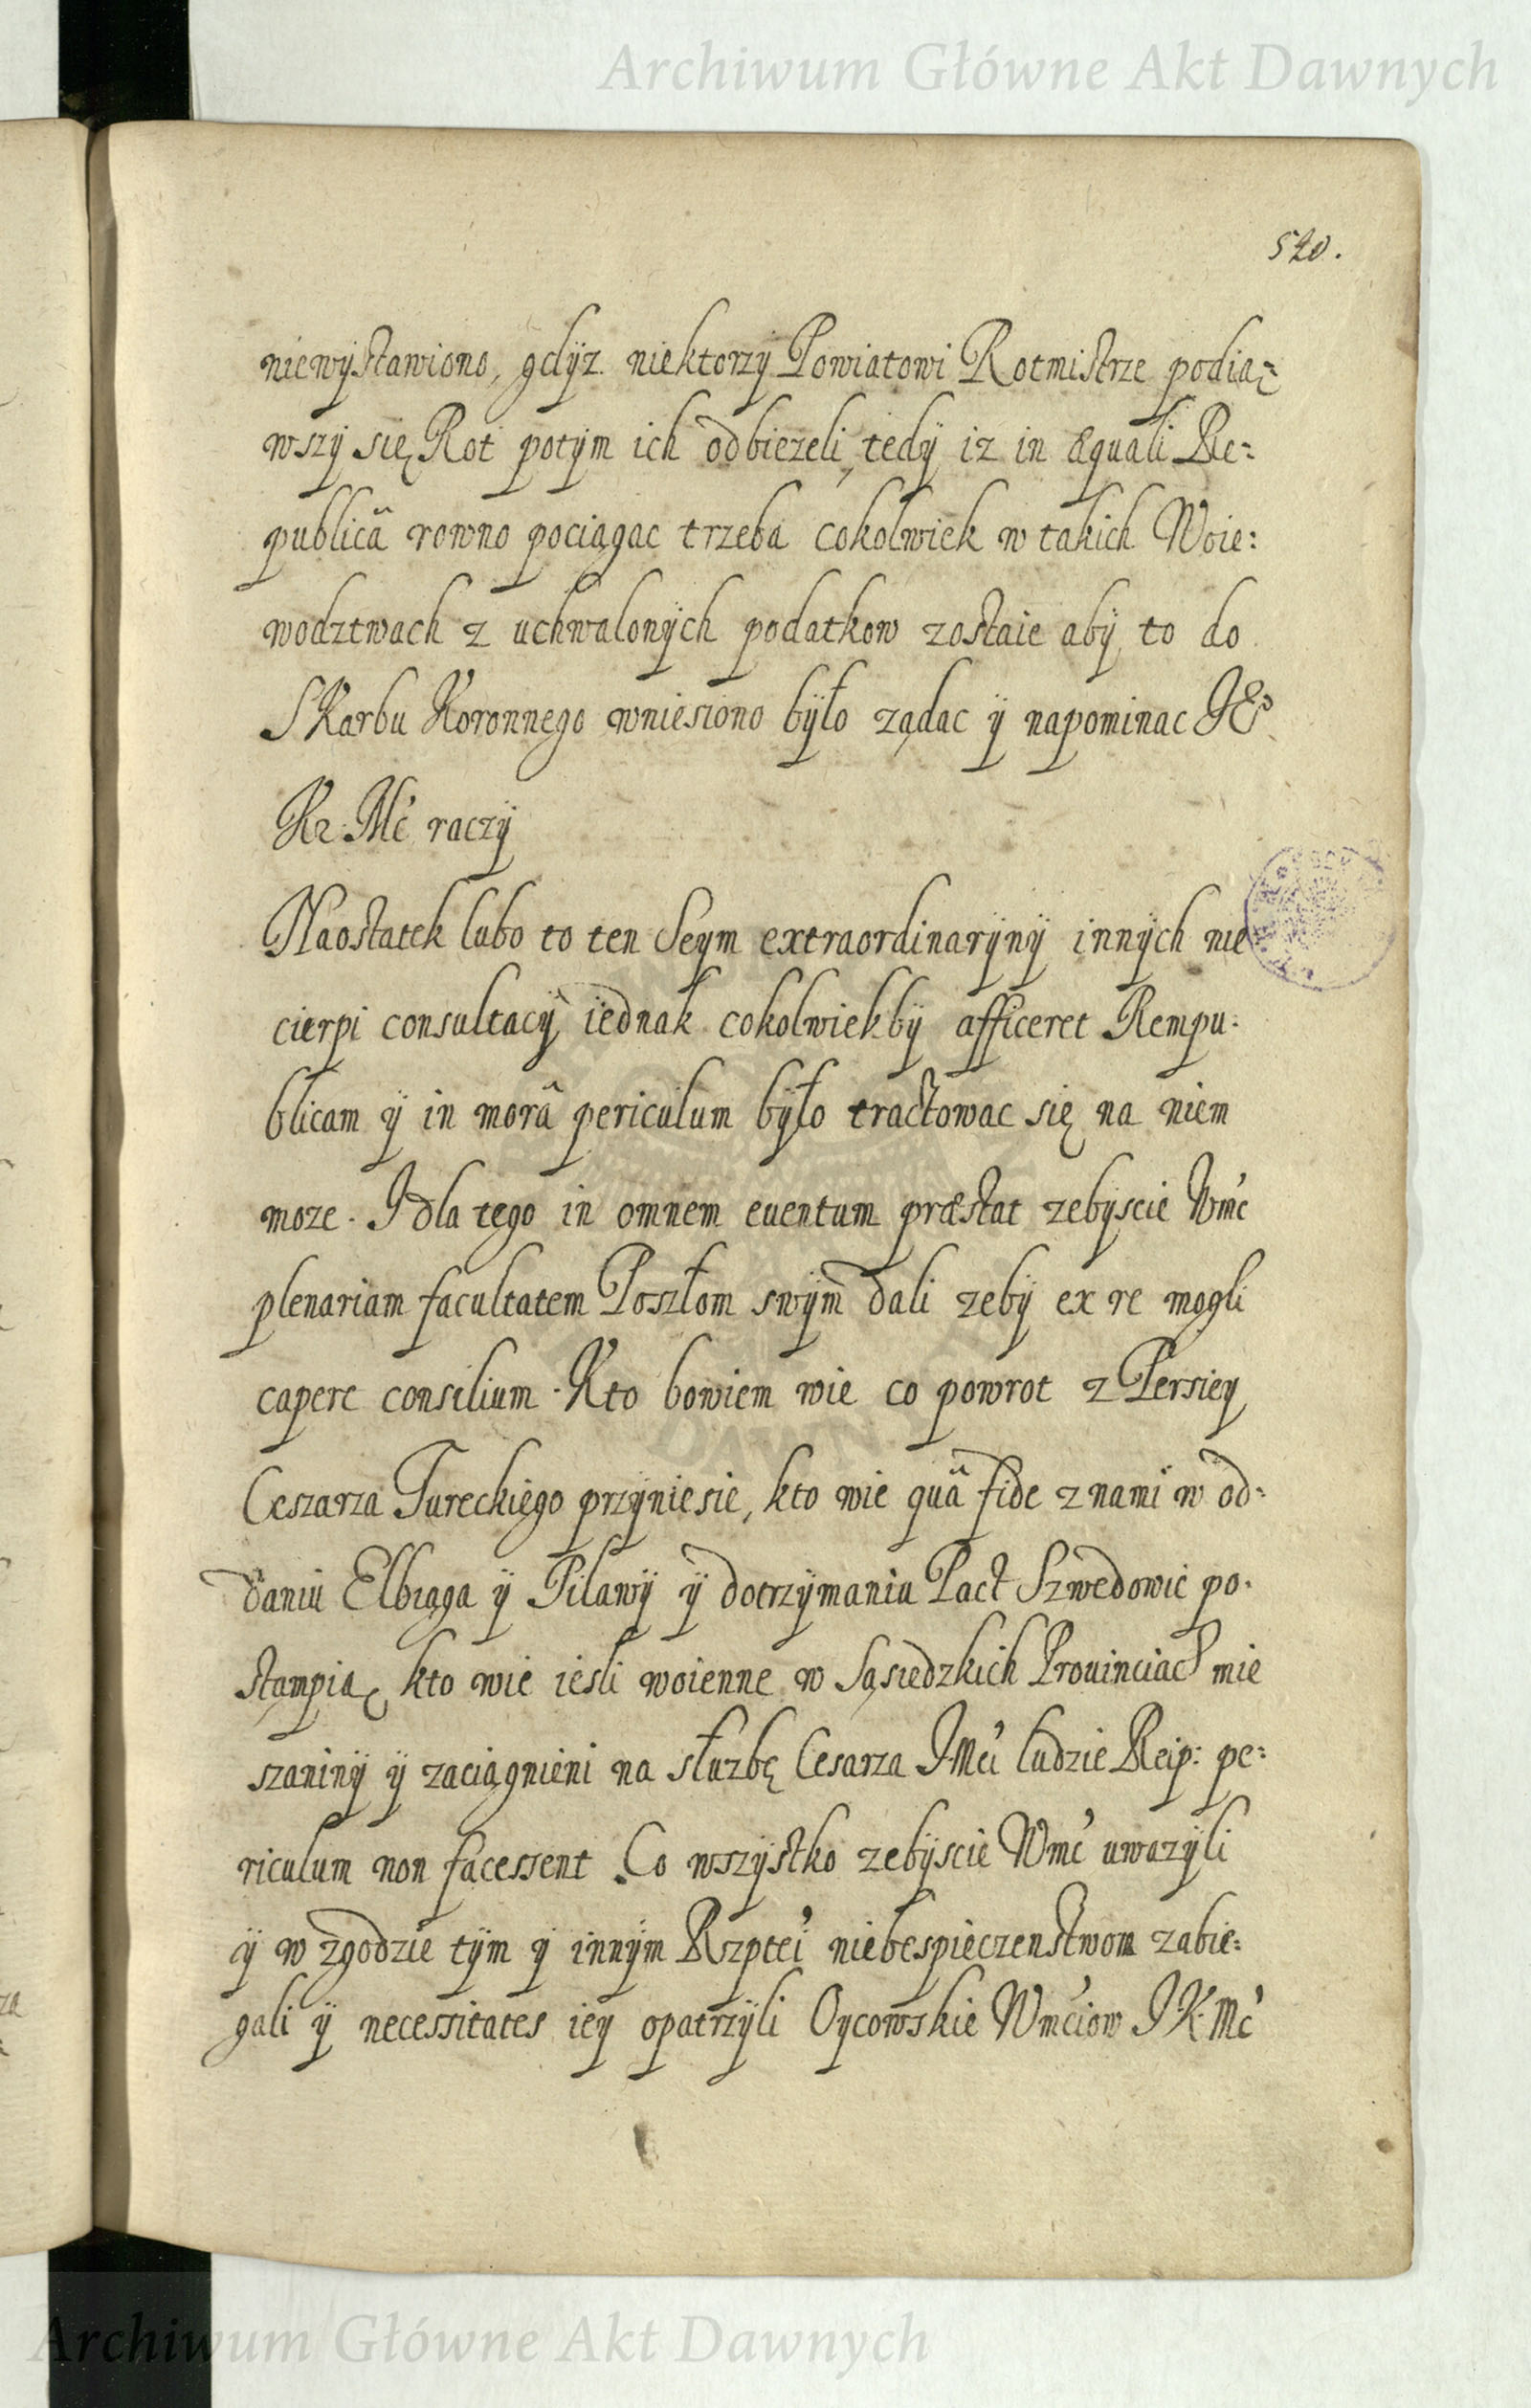 Archiwum Główne Akt Dawnych
520.
niewÿstawiono, gdÿz niektorzÿ Powiatowi Rotmistrze podią=
wszÿ się Rot potÿm ich odbiezeli, tedÿ iz in æquali Re=
publicâ rowno pociągac trzeba cokolwiek w takich Woie=
wodztwach z uchwalonÿch podatkow zostaie abÿ to do
Skarbu Koronnego wniesiono bÿło ządac ÿ napominac JEo
Kr: Mć raczÿ
Naostatek lubo to ten Seym extraordinarÿnÿ innÿch nie
cierpi consultacÿ, iednak cokolwiekbÿ afficeret Rempu=
blicam ÿ in morâ periculum bÿło tractowac się na niem
moze. I dla tego in omnem euentum præstat zebÿscie Wmć
plenariam facultatem Poszłom swÿm dali zebÿ ex re mogli
capere consilium. Kto bowiem wie co powrot z Persiey
Ceszarza Tureckiego przÿniesie, kto wie quâ fide z nami w od=
daniu Elbiąga ÿ Pilawÿ ÿ dotrzÿmaniu Pact Szwedowie po=
stąmpią kto wie iesli woienne w Sąsiedzkich Prouinciach mie
szaninÿ ÿ zaciągnieni na słuzbę Cesarza JMci ludzie Reip: pe=
riculum non facessent. Co wszÿstko zebÿscie Wmć uwazÿli
ÿ w zgodzie tÿm ÿ innÿm Rzptei niebespieczenstwom zabie=
gali ÿ necessitates iey opatrzÿli Oycowskie Wmćiow J K. Mć
Archiwum Główne Akt Dawnych